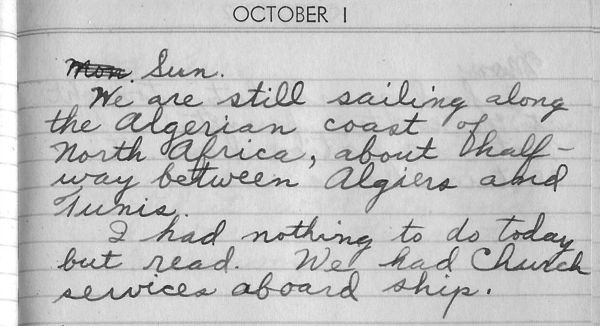 OCTOBER 1
Mon. Sun.
We are still sailing along
the Algerian coast of
North Africa, about half-
way between Algiers and
Tunis.
I had nothing to do today
but read. We had Church
services aboard ship.